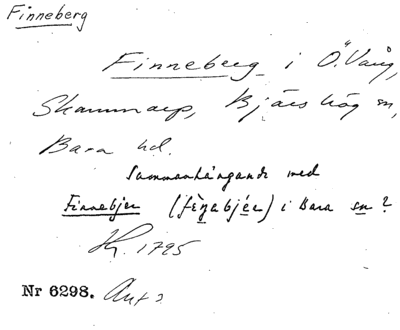 Finneberg
Finneberg i Ö. Vång,
Skammarp, Bjäreshög sn,
Bara hd.
Sammanhängande med
Finnebjer (fènabjér) i Bara sn?
1795
Nr 6298.